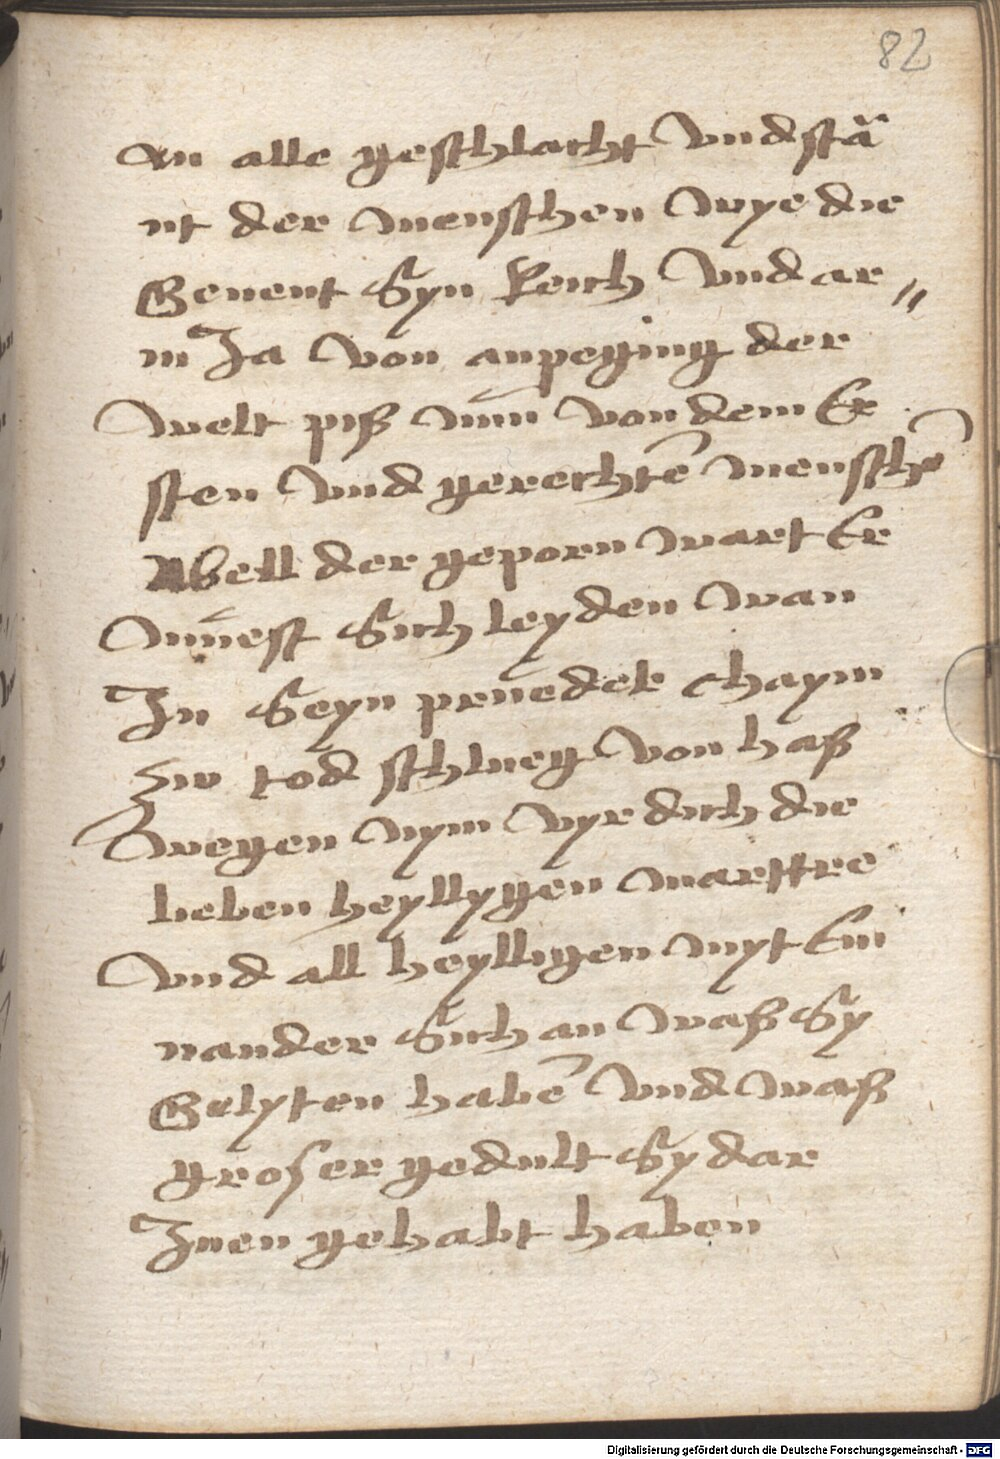 82
an alle geschlacht vnd stā
nt der menschen wye die
Genent Syn Reich vnd ar〃
m Ja von anpeging der
welt piß nun von dem Er
sten vnd gerechtē menschē
Abell der geporn wart Er
muest Sich leyden wan
In Seyn prueder chaym
zw tod schlueg von haß
wegen nym vyr dich die
lieben heyllygen marttre
vnd all heylligen myt Ein
nander Sich an waß Sy
Gelyten habē vnd waß
groser gedult Sy dar
Inen gehabt haben
Digitalisierung gefördert durch die Deutsche Forschungsgemeinschaft - DFG